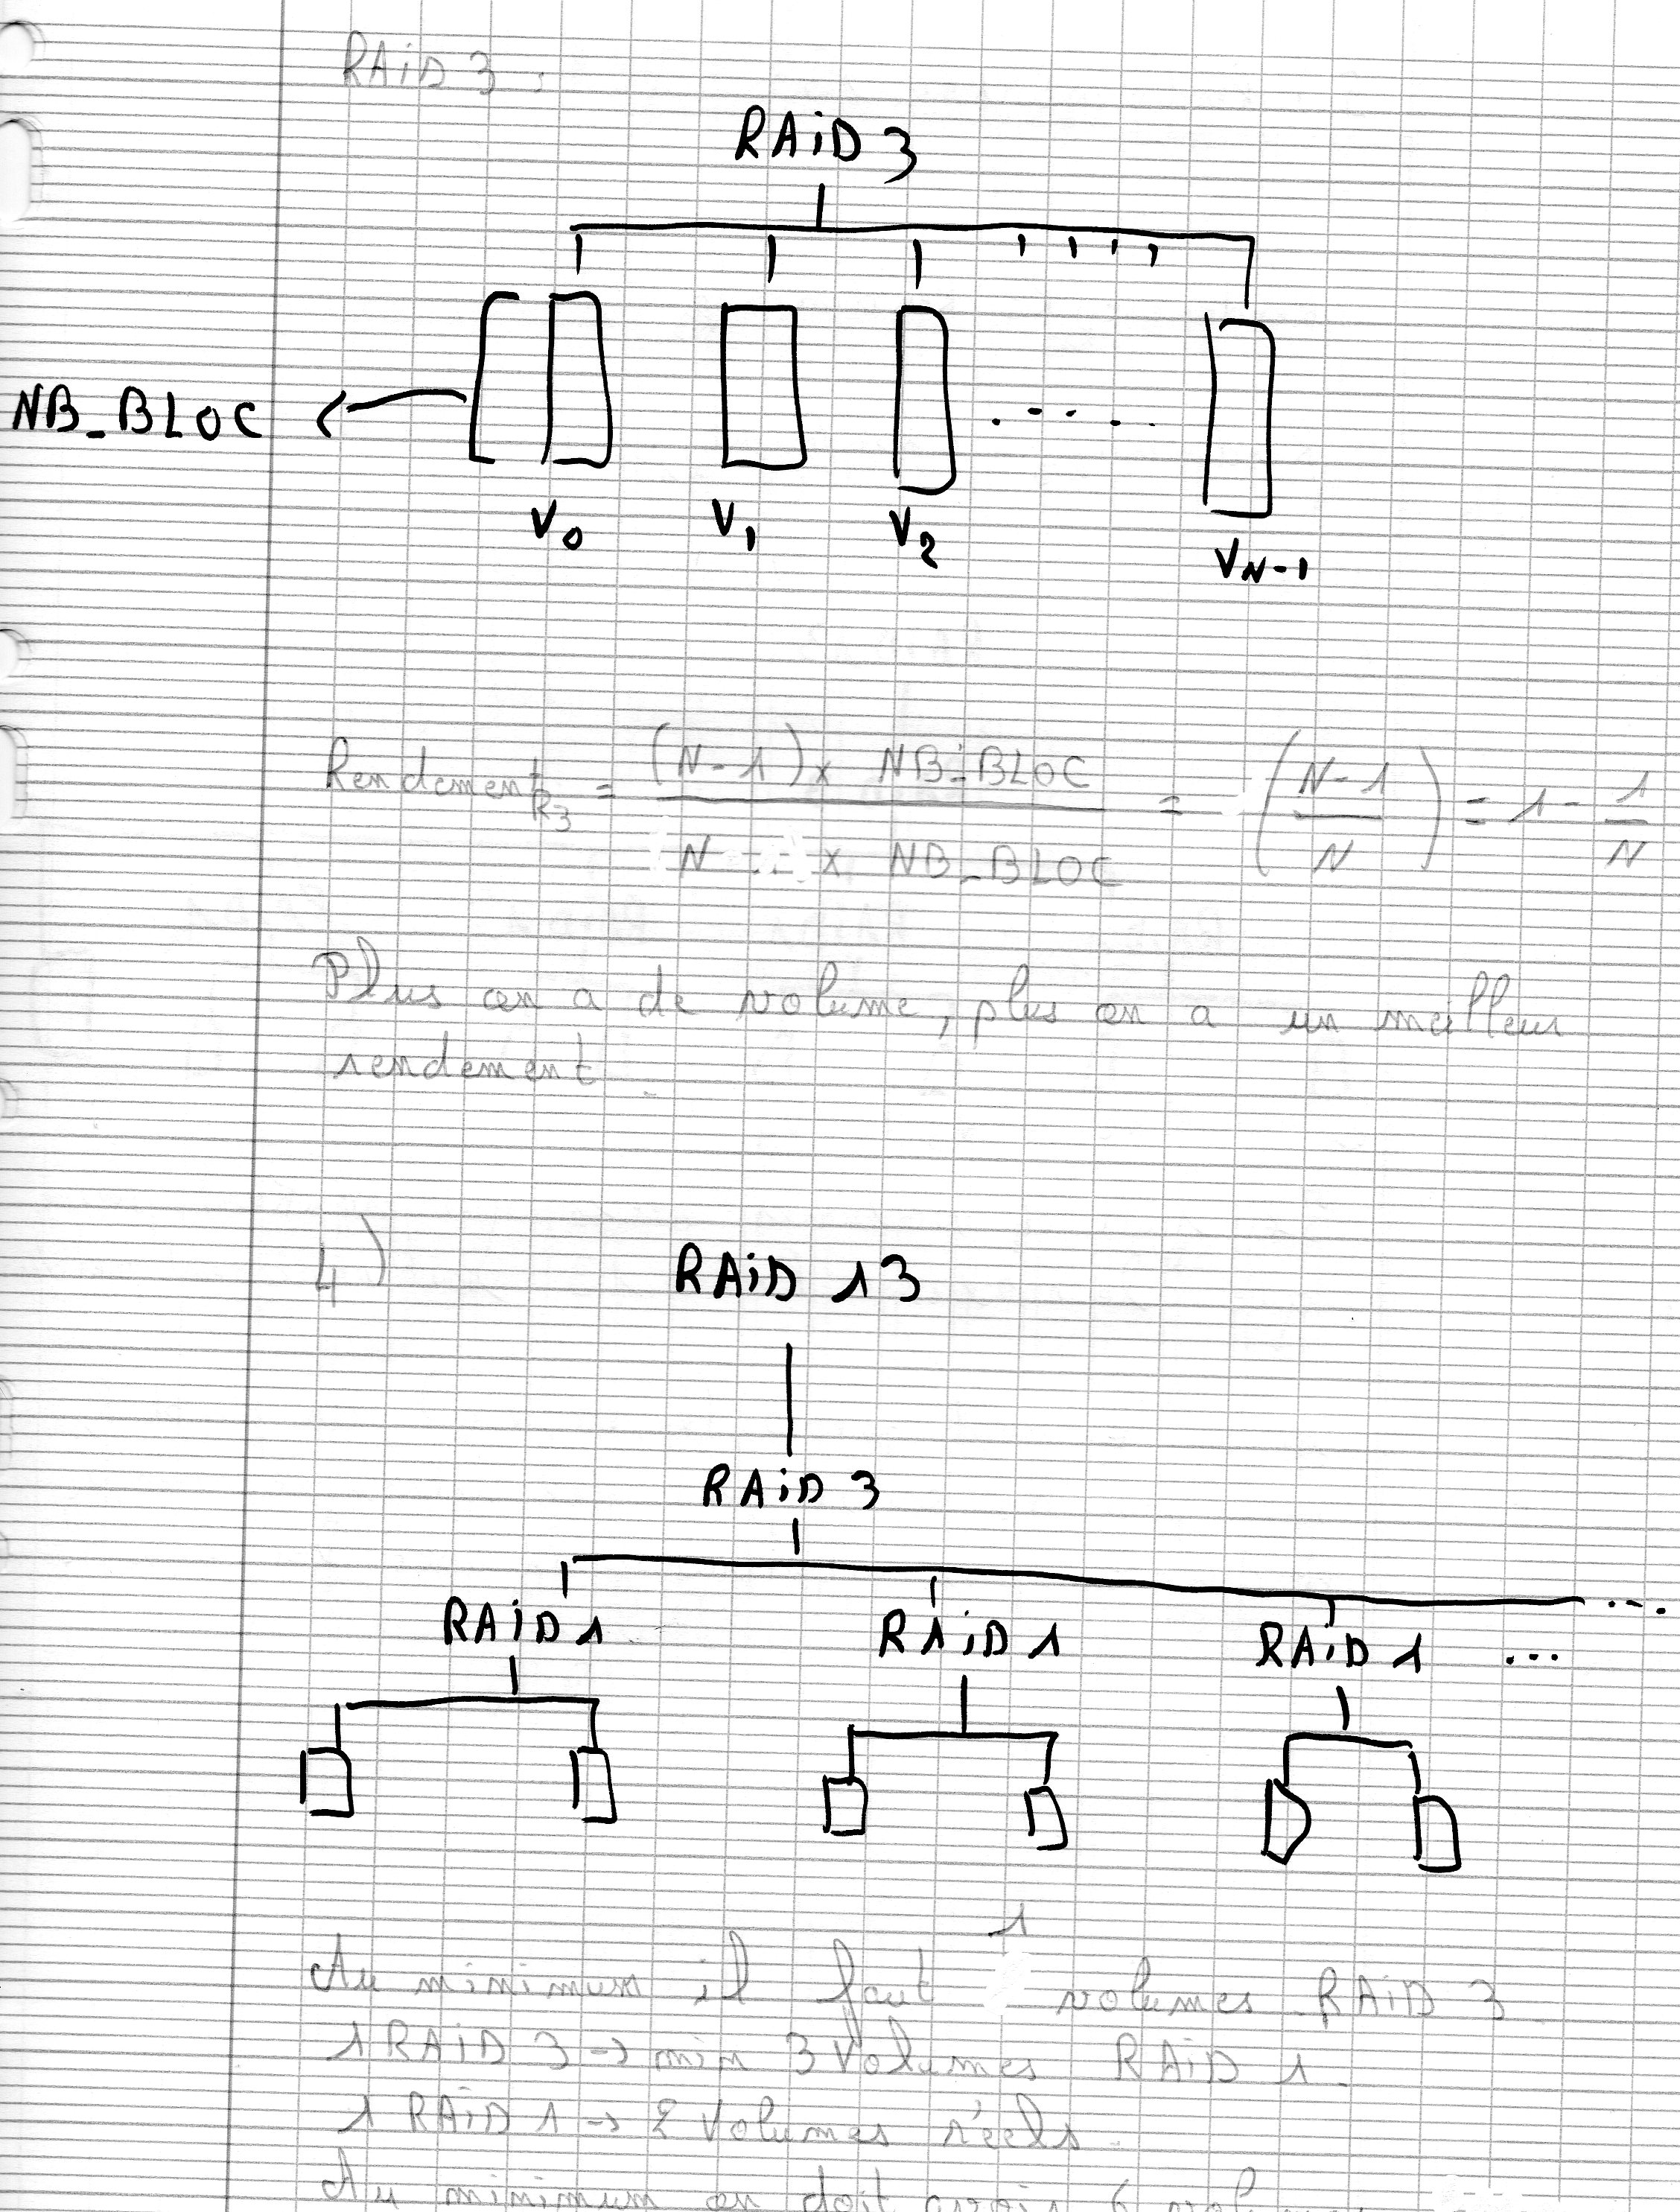 RAiD 3 :
RAiD 3
NB_BLOC
V0 V1 V2 ..... VN-1
Rendement R3 = (N-1) x NB_BLOC / N x NB_BLOC = (N-1 / N) = 1 - 1/N
Plus on a de volume, plus on a un meilleur
rendement
4) RAiD 13
RAiD 3
RAiD 1 RAiD 1 RAiD 1 ...
Au minimum il faut 1 volumes RAiD 3
1 RAiD 3 -> min 3 Volumes RAiD 1.
1 RAiD 1 -> 2 Volumes réels.
Au minimum on doit avoir 6